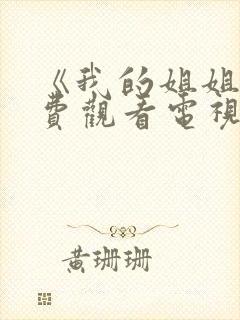 《我的姐姐
費觀看電視
黃珊珊